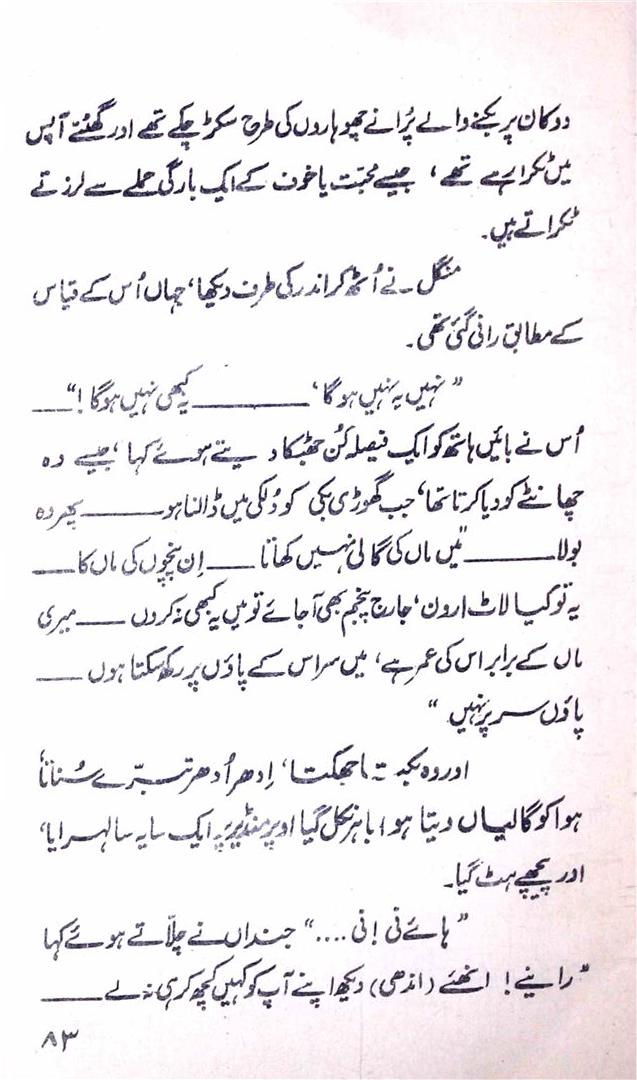 دوکان پر بکنے والے پُرانے چھوہاروں کی طرح سکڑ چکے تھے اور گھٹنے آپس
میں ٹکرا رہے تھے ، جیسے محبّت یا خوف کے ایک بارگی حملے سے لرزتے
ٹکراتے ہیں۔
منگل نے اُٹھ کر اندر کی طرف دیکھا، جہاں اُس کے قیاس
کے مطابق رانی گئی تھی۔
” نہیں یہ نہیں ہوگا، ——— یہ کبھی نہیں ہوگا !“ —
اُس نے بائیں ہاتھ کو ایک فیصلہ کُن جھٹکا دیتے ہوئے کہا ، جیسے وہ
چھانٹے کو دیا کرتا تھا، جب گھوڑی بکی کو دُلکی میں ڈالنا ہو —— پھر وہ
بولا —— ”میں ماں کی گالی نہیں کھاتا —— اِن پنچوں کی ماں کا ——
یہ تو کیا لاٹ ارون، جارج پنجم بھی آجائے تو میں یہ کبھی نہ کروں —— میری
ماں کے برابر اس کی عمر ہے، میں سر اس کے پاؤں پر رکھ سکتا ہوں ——
پاؤں سر پر نہیں “
اور وہ بکتا جھکتا، اِدھر اُدھر تبرّے سُناتا
ہوا کو گالیاں دیتا ہوا باہر نکل گیا اوپر منڈیر پہ ایک سایہ سا لہرایا،
اور پیچھے ہٹ گیا۔
” ہائے نی اِنی ....“ جنداں نے چلّاتے ہوئے کہا
” رانیے ! انھئے (اندھی) دیکھ اپنے آپ کو کہیں کچھ کر ہی نہ لے ——
۸۳